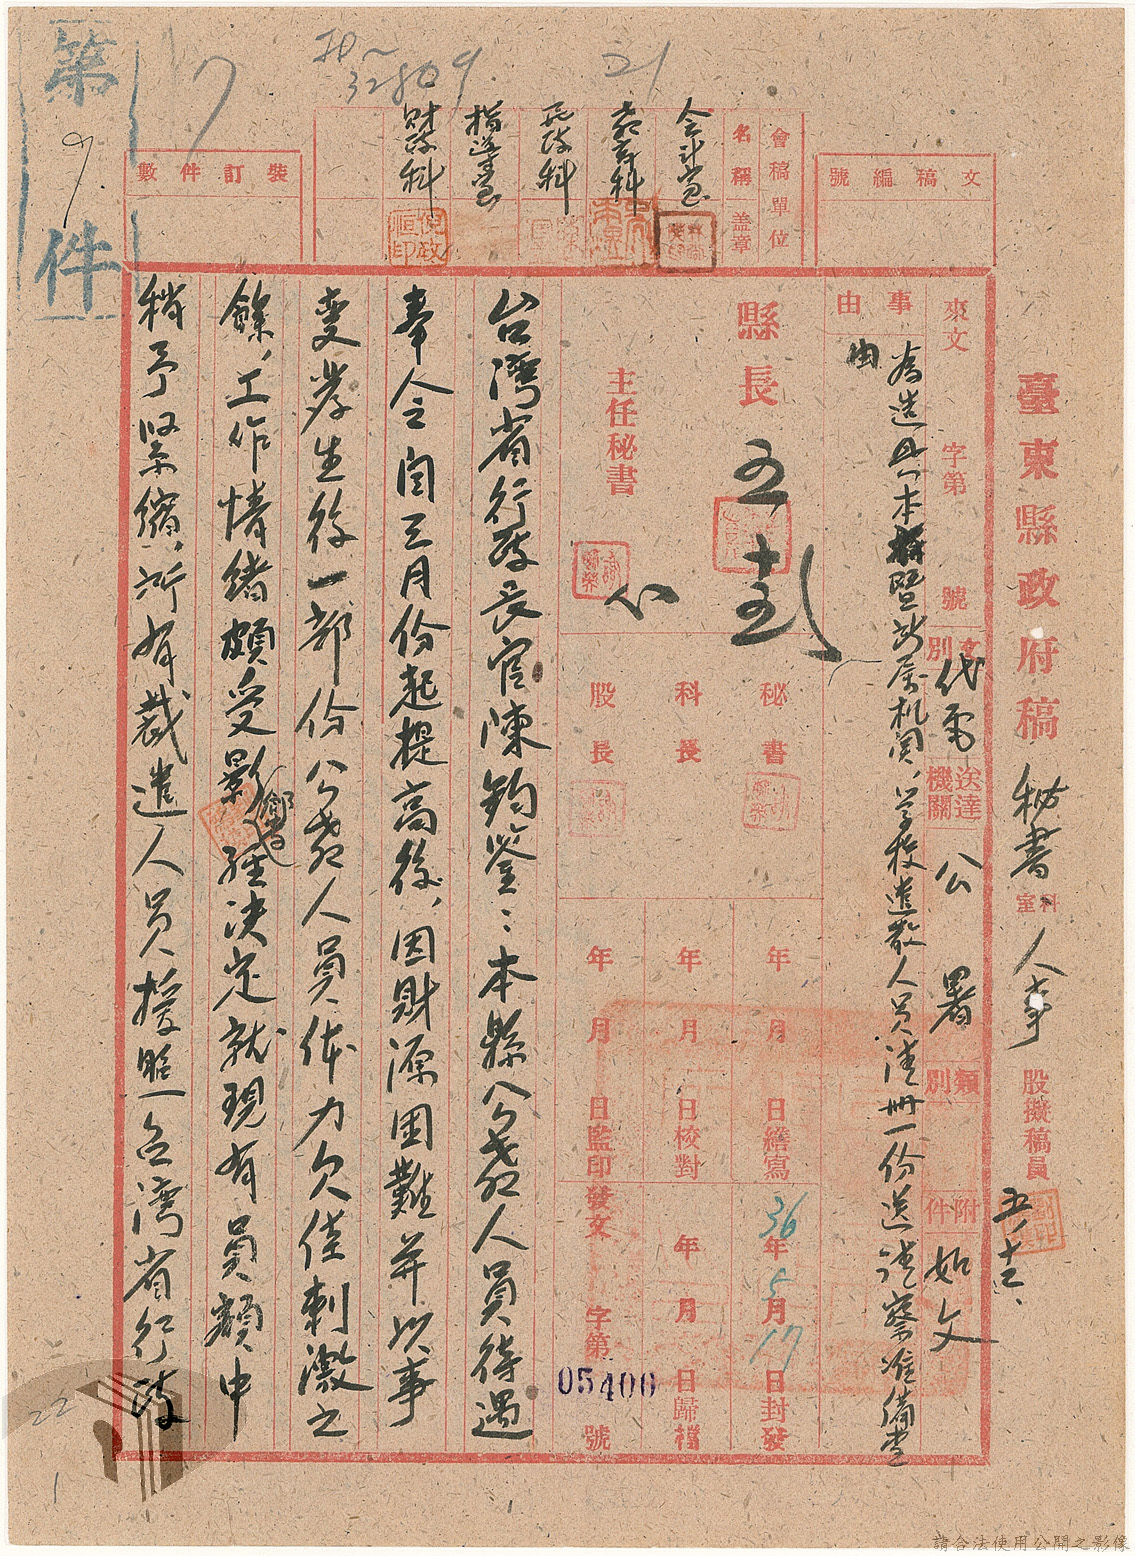 臺東縣政府稿
秘書
室科
人事
股擬稿員
五、十五、
文稿編號
會稿單位
名稱
蓋章
會計室
教育科
民政科
指導室
財政科
倪政恒印
裝訂件數
第
9
件
7
32809
來文
字第
號
文別
代電
送達機關
公署
類別
附件
如文
事由
為造具本府暨所屬機關、學校遣散人員清冊一份送請察准備查
由
縣長
主任秘書
秘書
科長
股長
年月日繕寫
年月日校對
年月日監印
36年5月17日封發
年月日歸檔
發文
字第
05400
號
台灣省行政長官陳鈞鑒：本縣公教人員待遇
奉令自三月份起提高後，因財源困難并以事
變發生後一部份公教人員体力欠佳刺激之
餘，工作情緒頗受影響
經決定就現有員額中
稍予緊縮，所有裁遣人員援照台灣省行政
22
1
請合法使用公開之影像